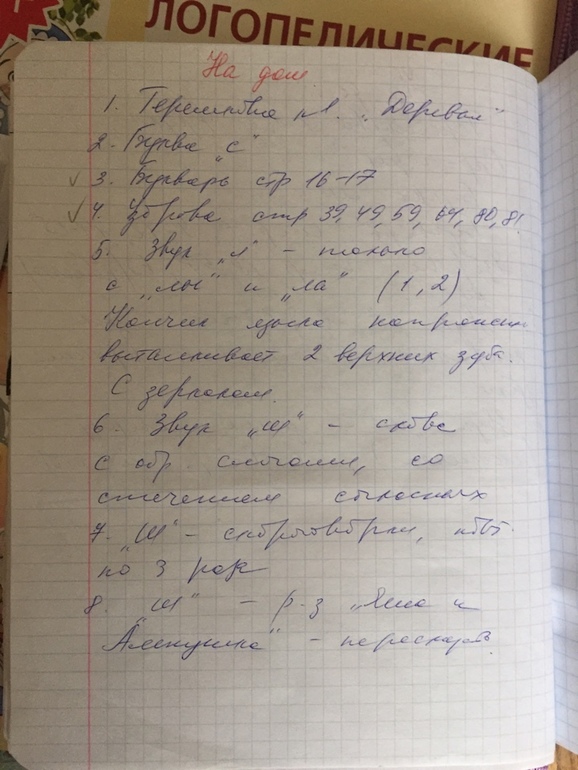 ЛОГОПЕДИЧЕСКИЕ
На дом
1. №1. „Деревья"
2. Буква „с"
√ 3. Букварь стр 16-17
√ 4. стр 39, 49, 59, 64, 80, 81
5. Звук „л" - только
с „лы" и „ла" (1, 2)
Кончик языка напряжён
выталкивает 2 верхних зуба.
С зеркалом.
6. Звук „ш" - слова
с обр. слогами, со
стечением согласных
7. „Ш" - скороговорки,
по 3 раза
8. „ш" - р-з „Яша и
Аленушка" - пересказ